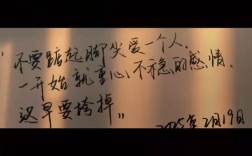 "不要踮起脚尖爱一个人，
一开始就重心不稳的感情，
迟早要垮掉"
2025年2月19日